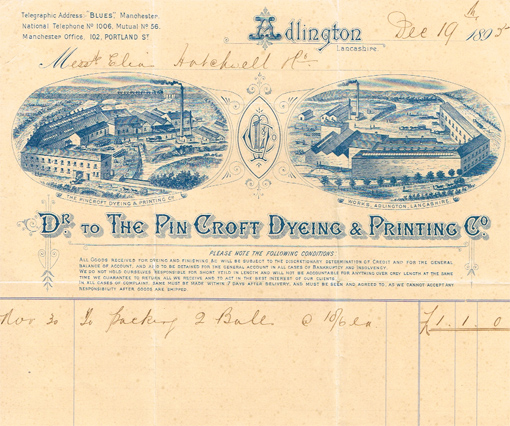 Telegraphic Address "BLUES", Manchester.
National Telephone Nº 1006, Mutual Nº 56.
Manchester Office, 102, PORTLAND ST
Adlington
Lancashire.
Dec 19th 1895
Messrs Elia
THE PINCROFT DYEING & PRINTING Co
WORKS, ADLINGTON, LANCASHIRE.
DR TO THE PIN CROFT DYEING & PRINTING Co
PLEASE NOTE THE FOLLOWING CONDITIONS
ALL GOODS RECEIVED FOR DYEING AND FINISHING &c WILL BE SUBJECT TO THE DISCRETIONARY DETERMINATION OF CREDIT AND FOR THE GENERAL
BALANCE OF ACCOUNT, AND ALSO TO BE DETAINED FOR THE GENERAL ACCOUNT IN ALL CASES OF BANKRUPTCY AND INSOLVENCY.
WE DO NOT HOLD OURSELVES RESPONSIBLE FOR SHORT YIELD IN LENGTH AND WILL NOT BE ACCOUNTABLE FOR ANYTHING OVER GREY LENGTH AT THE SAME
TIME, WE GUARANTEE TO RETURN ALL WE RECEIVE AND TO ACT IN THE BEST INTEREST OF OUR CLIENTS
IN ALL CASES OF COMPLAINT, SAME MUST BE MADE WITHIN 7 DAYS AFTER DELIVERY, AND MUST BE SEEN AND AGREED TO, AS WE CANNOT ACCEPT ANY
RESPONSIBILITY AFTER GOODS ARE SHIPPED.
Nov 30 To packing 2 Bales @ 10/6 ea. £1 1 0